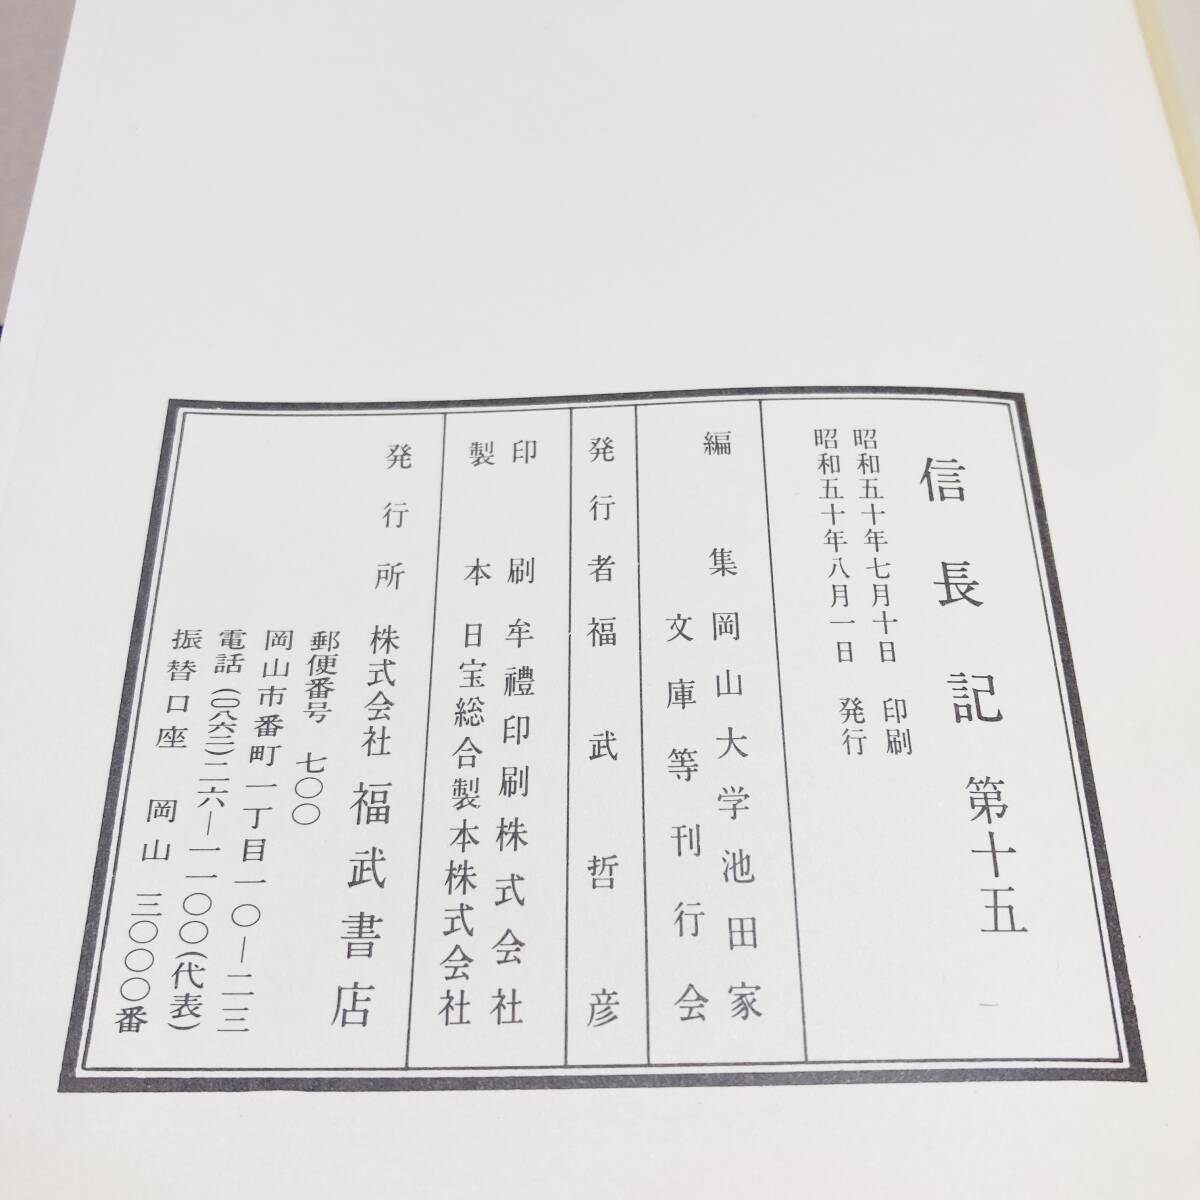 信長記 第十五
昭和五十年七月十日 印刷
昭和五十年八月一日 発行
編集 岡山大学池田家
文庫等刊行会
発行者 福武哲彦
印刷 牟禮印刷株式会社
製本 日宝総合製本株式会社
発行所 株式会社 福武書店
郵便番号 七〇〇
岡山市番町一丁目一〇―二三
電話(〇八六二)二六―一一〇〇(代表)
振替口座 岡山 三〇〇〇番